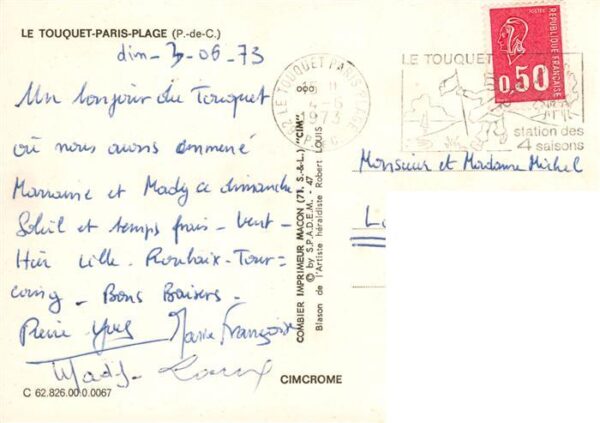 LE TOUQUET-PARIS-PLAGE (P.-de-C.)
dim- 3-06-73
Un bonjour du Touquet
où nous avons emmené
Marraine et Mady ce dimanche
Soleil et temps frais - Vent -
Hier Lille - Roubaix - Tour=
coing - Bons Baisers -
Pierre Yves Marie Françoise
Mady
CIMCROME
C 62.826.00.0.0067
COMBIER IMPRIMEUR MACON (71. S.-&-L.) "CIM"
© by S.P.A.D.E.M. - 47
Blason de l'Artiste héraldiste Robert LOUIS
62 LE TOUQUET PARIS PLAGE
1973
LE TOUQUET
station des
4 saisons
POSTES
0,50
REPUBLIQUE FRANÇAISE
Monsieur et Madame Michel